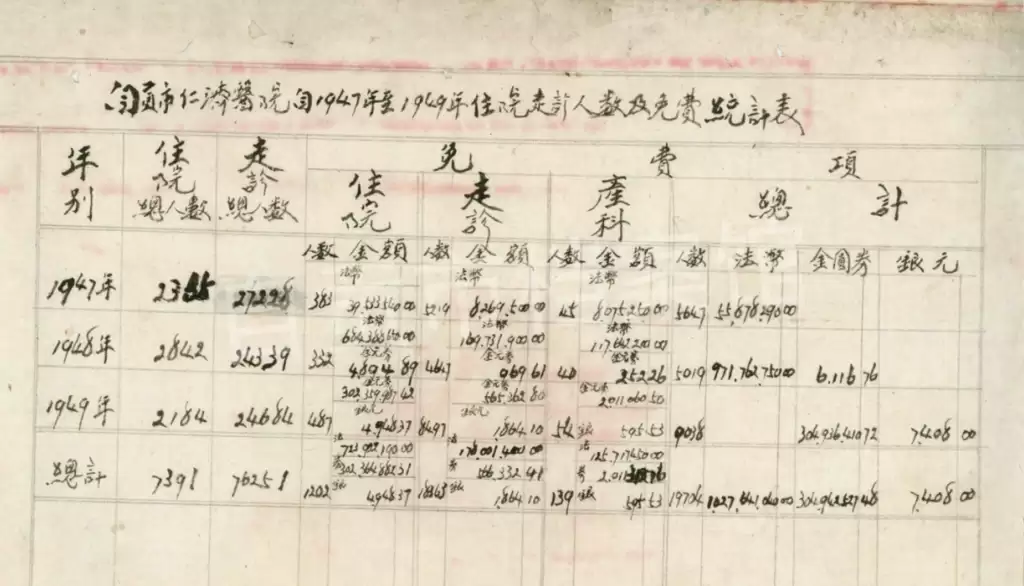 自貢市仁濟醫院自1947年至1949年住院走診人数及免費統計表
年别 住院總人數 走診總人数 免費項
住院 走診 產科 總計
人數 金額 人數 金額 人數 金額 人數 法幣 金圓券 銀元
法幣 法幣 法幣
1947年 27228 383 39,533,540.00 5219 8,269,500.00 45 8,075,250.00 5647 55,878,290.00
法幣 法幣 法幣
684,388,650.00 169,731,900.00 117,642,200.00
金元券 金元券 金元券
1948年 2842 24339 332 4,894.89 4647 969.61 40 252.26 5019 971,762,750.00 6,116.76
金元券 金元券 金元券
302,359,987.42 565,362.80 2,011,060.50
銀元 銀元 銀
1949年 2184 24684 487 4,948.37 8497 1,864.10 54 595.53 9038 304,936,410.72 7,408.00
法 723,922,190.00 法 178,001,400.00 法 125,717,450.00
券 302,364,882.31 566,332.41 券
總計 7391 76251 1202 銀 4,948.37 18363 銀 1,864.10 139 銀 595.53 19704 1,027,641,040.00 304,942,527.48 7,408.00